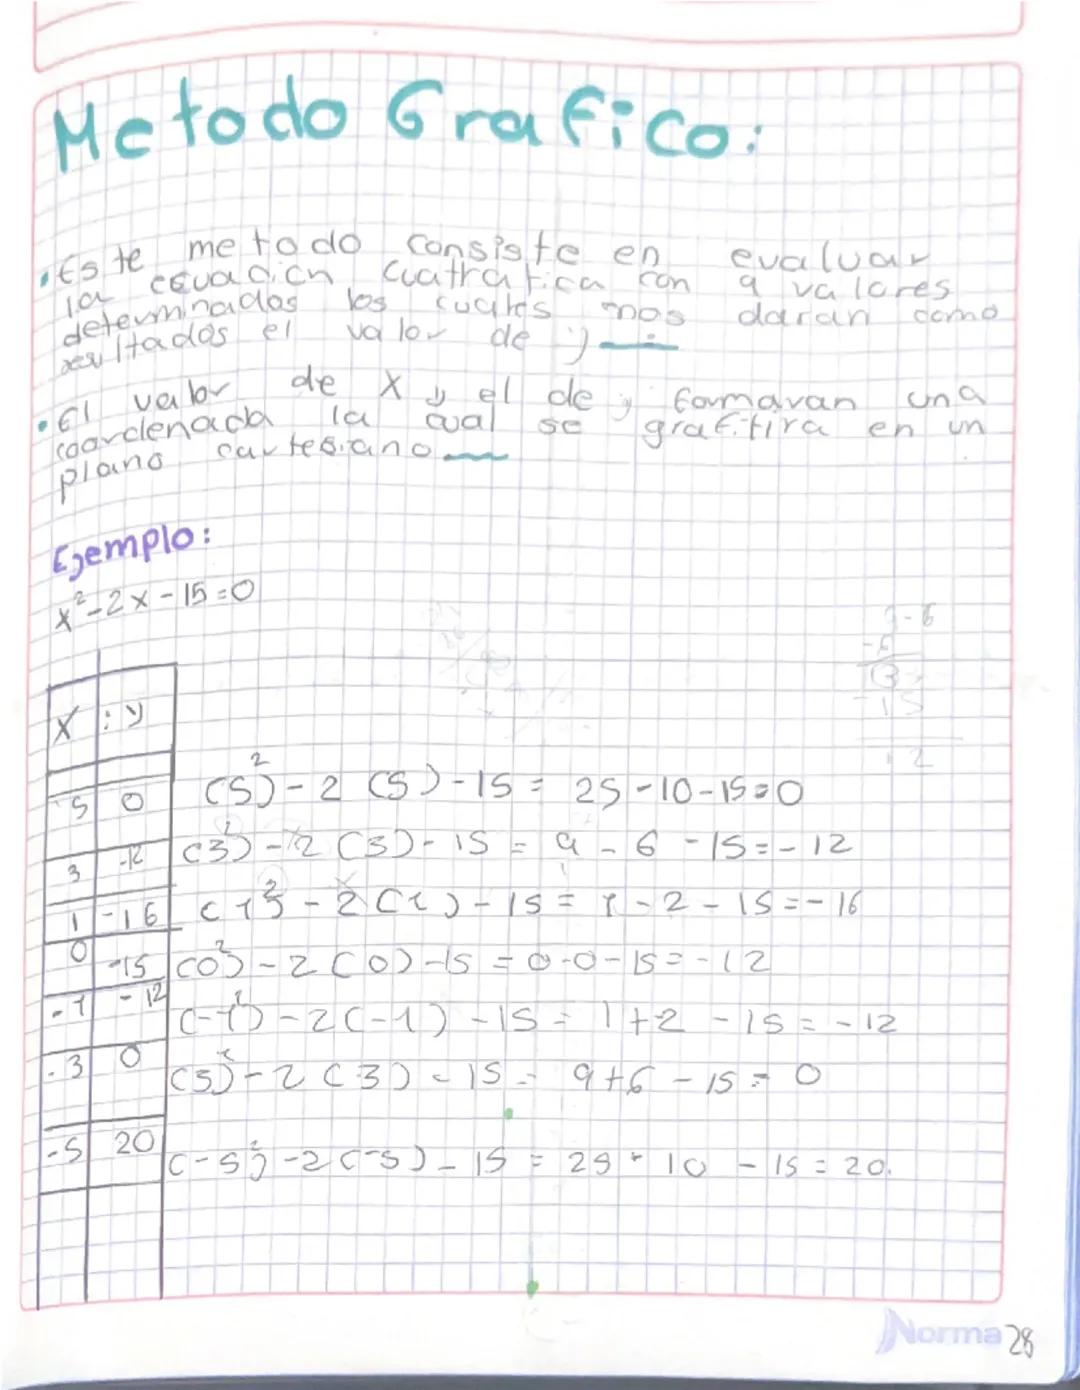 Metodo Grafico:
• Este metodo consiste en evaluar
la ecuación cuatratica con 9 valores
determinados los cuales nos daran como
resultados el valor de y
• El valor de x y el de y formaran una
coordenada la cual se grafitira en un
plano cartesiano
Ejemplo:
x²-2x-15=0
x : y
5 0 (5)² - 2 (5) - 15 = 25 - 10 - 15 = 0
3 -12 (3)² - 2 (3) - 15 = 9 - 6 - 15 = - 12
1 -16 (1)² - 2 (1) - 15 = 1 - 2 - 15 = - 16
0 -15 (0)² - 2 (0) - 15 = 0 - 0 - 15 = - 12
-1 -12 (-1)² - 2 (-1) - 15 = 1 + 2 - 15 = - 12
-3 0 (3)² - 2 (-3) - 15 = 9 + 6 - 15 = 0
-5 20 (-5)² - 2 (-5) - 15 = 25 + 10 - 15 = 20.
Norma 28